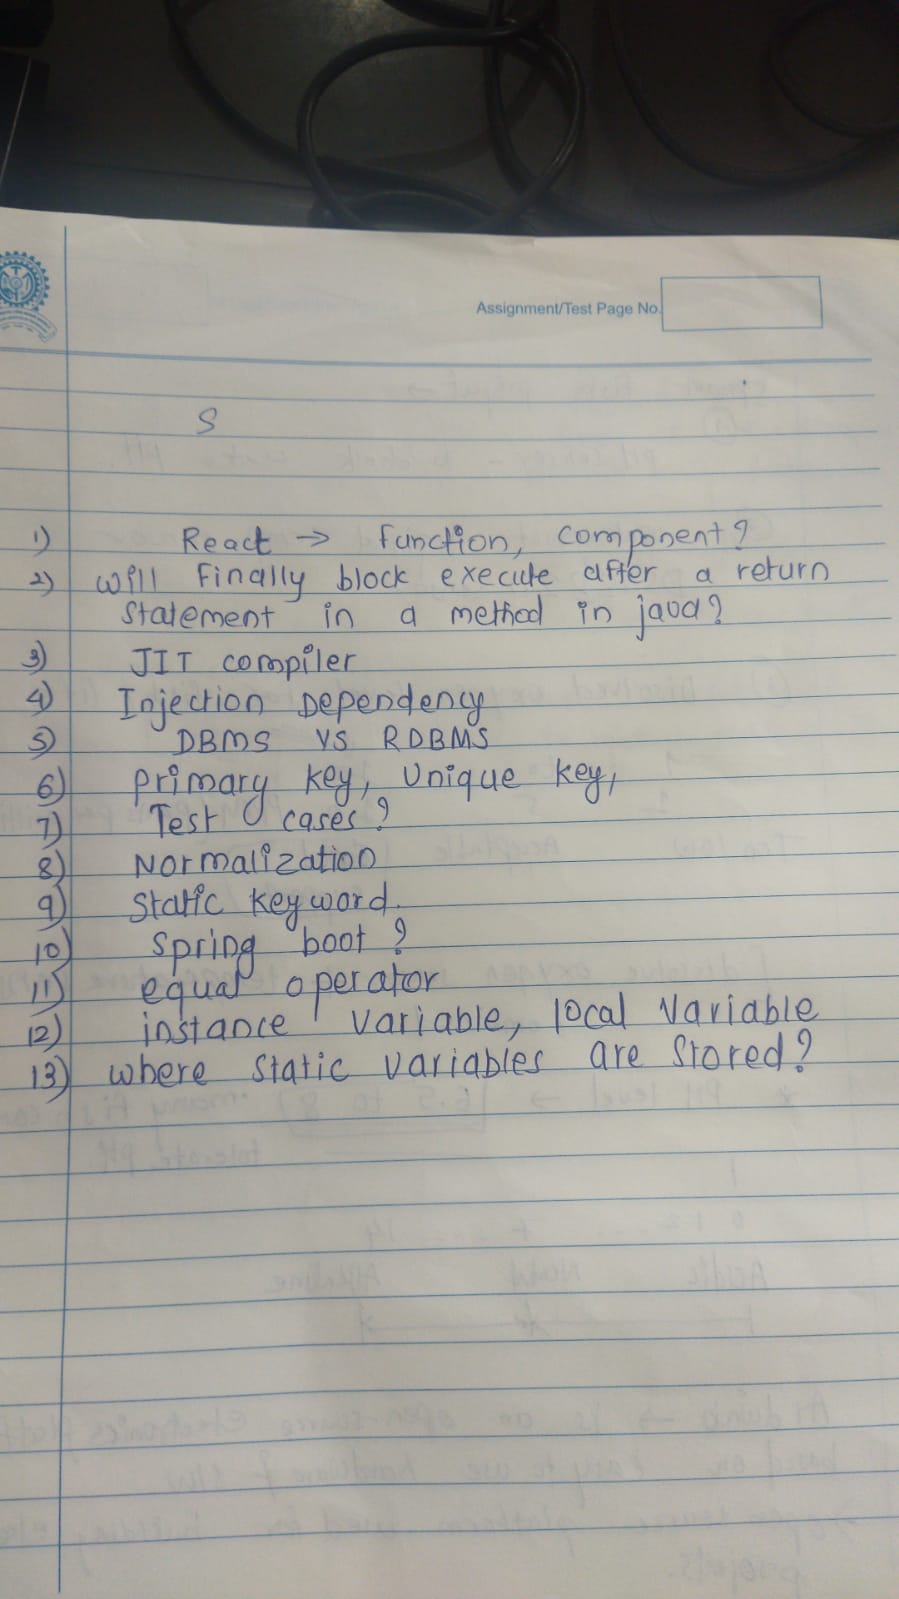 Assignment/Test Page No.
S
1) React → function, component?
2) will finally block execute after a return
statement in a method in java?
3) JIT compiler
4) Injection Dependency
5) DBMS VS RDBMS
6) primary key, Unique key,
7) Test cases?
8) Normalization
9) Static keyword.
10) Spring boot?
11) equal operator
12) instance variable, local variable
13) where static variables are stored?